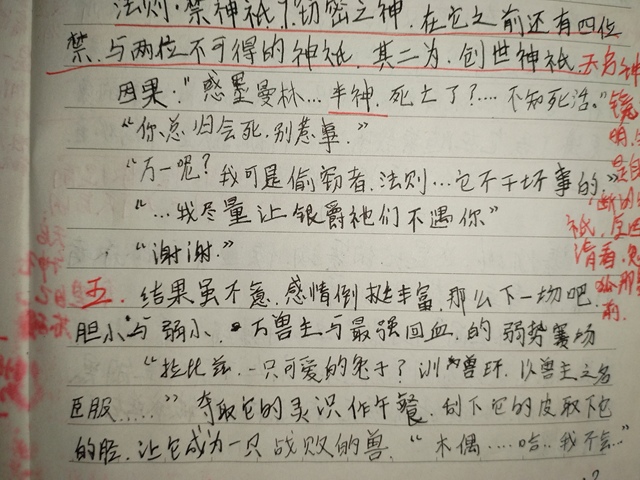 法则·禁神祇,窃密之神.在它之前还有四位
禁.与两位不可得的神祇.其二为.创世神祇
无名神
因果:"惑墨曼林…半神.死士了?….不知死活."
"你总归会死,别惹事."
"万一呢?我可是偷窃者.法则…它不干坏事的."
"…我尽量让银爵祂们不遇你"
"谢谢."
五.结果虽不意.感情倒挺丰富.那么下一场吧.
胆小与弱小.万兽主与最强回血.的弱势赛场
"拉比兹.一只可爱的兔子?训兽环.以兽主之名
臣服……"夺取它的灵识作午餐.剖下它的皮取下它
的脸.让它成为一只战败的兽."木偶….哈..我不会…"
镜
明
是自
祇.
清看.
前.